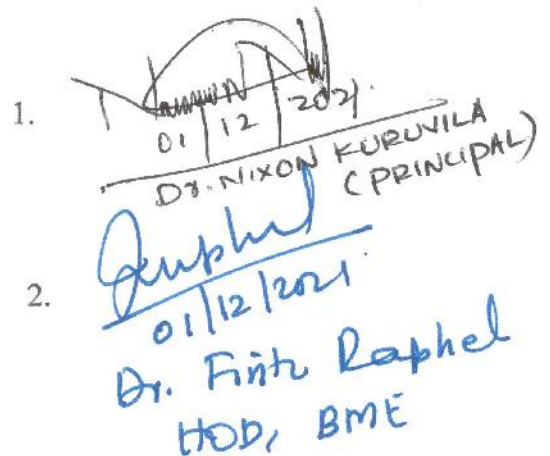 1.
01/12/2021.
Dr. NIXON KURUVILA
(PRINCIPAL)
2.
01/12/2021.
Dr. Finto Raphel
HOD, BME